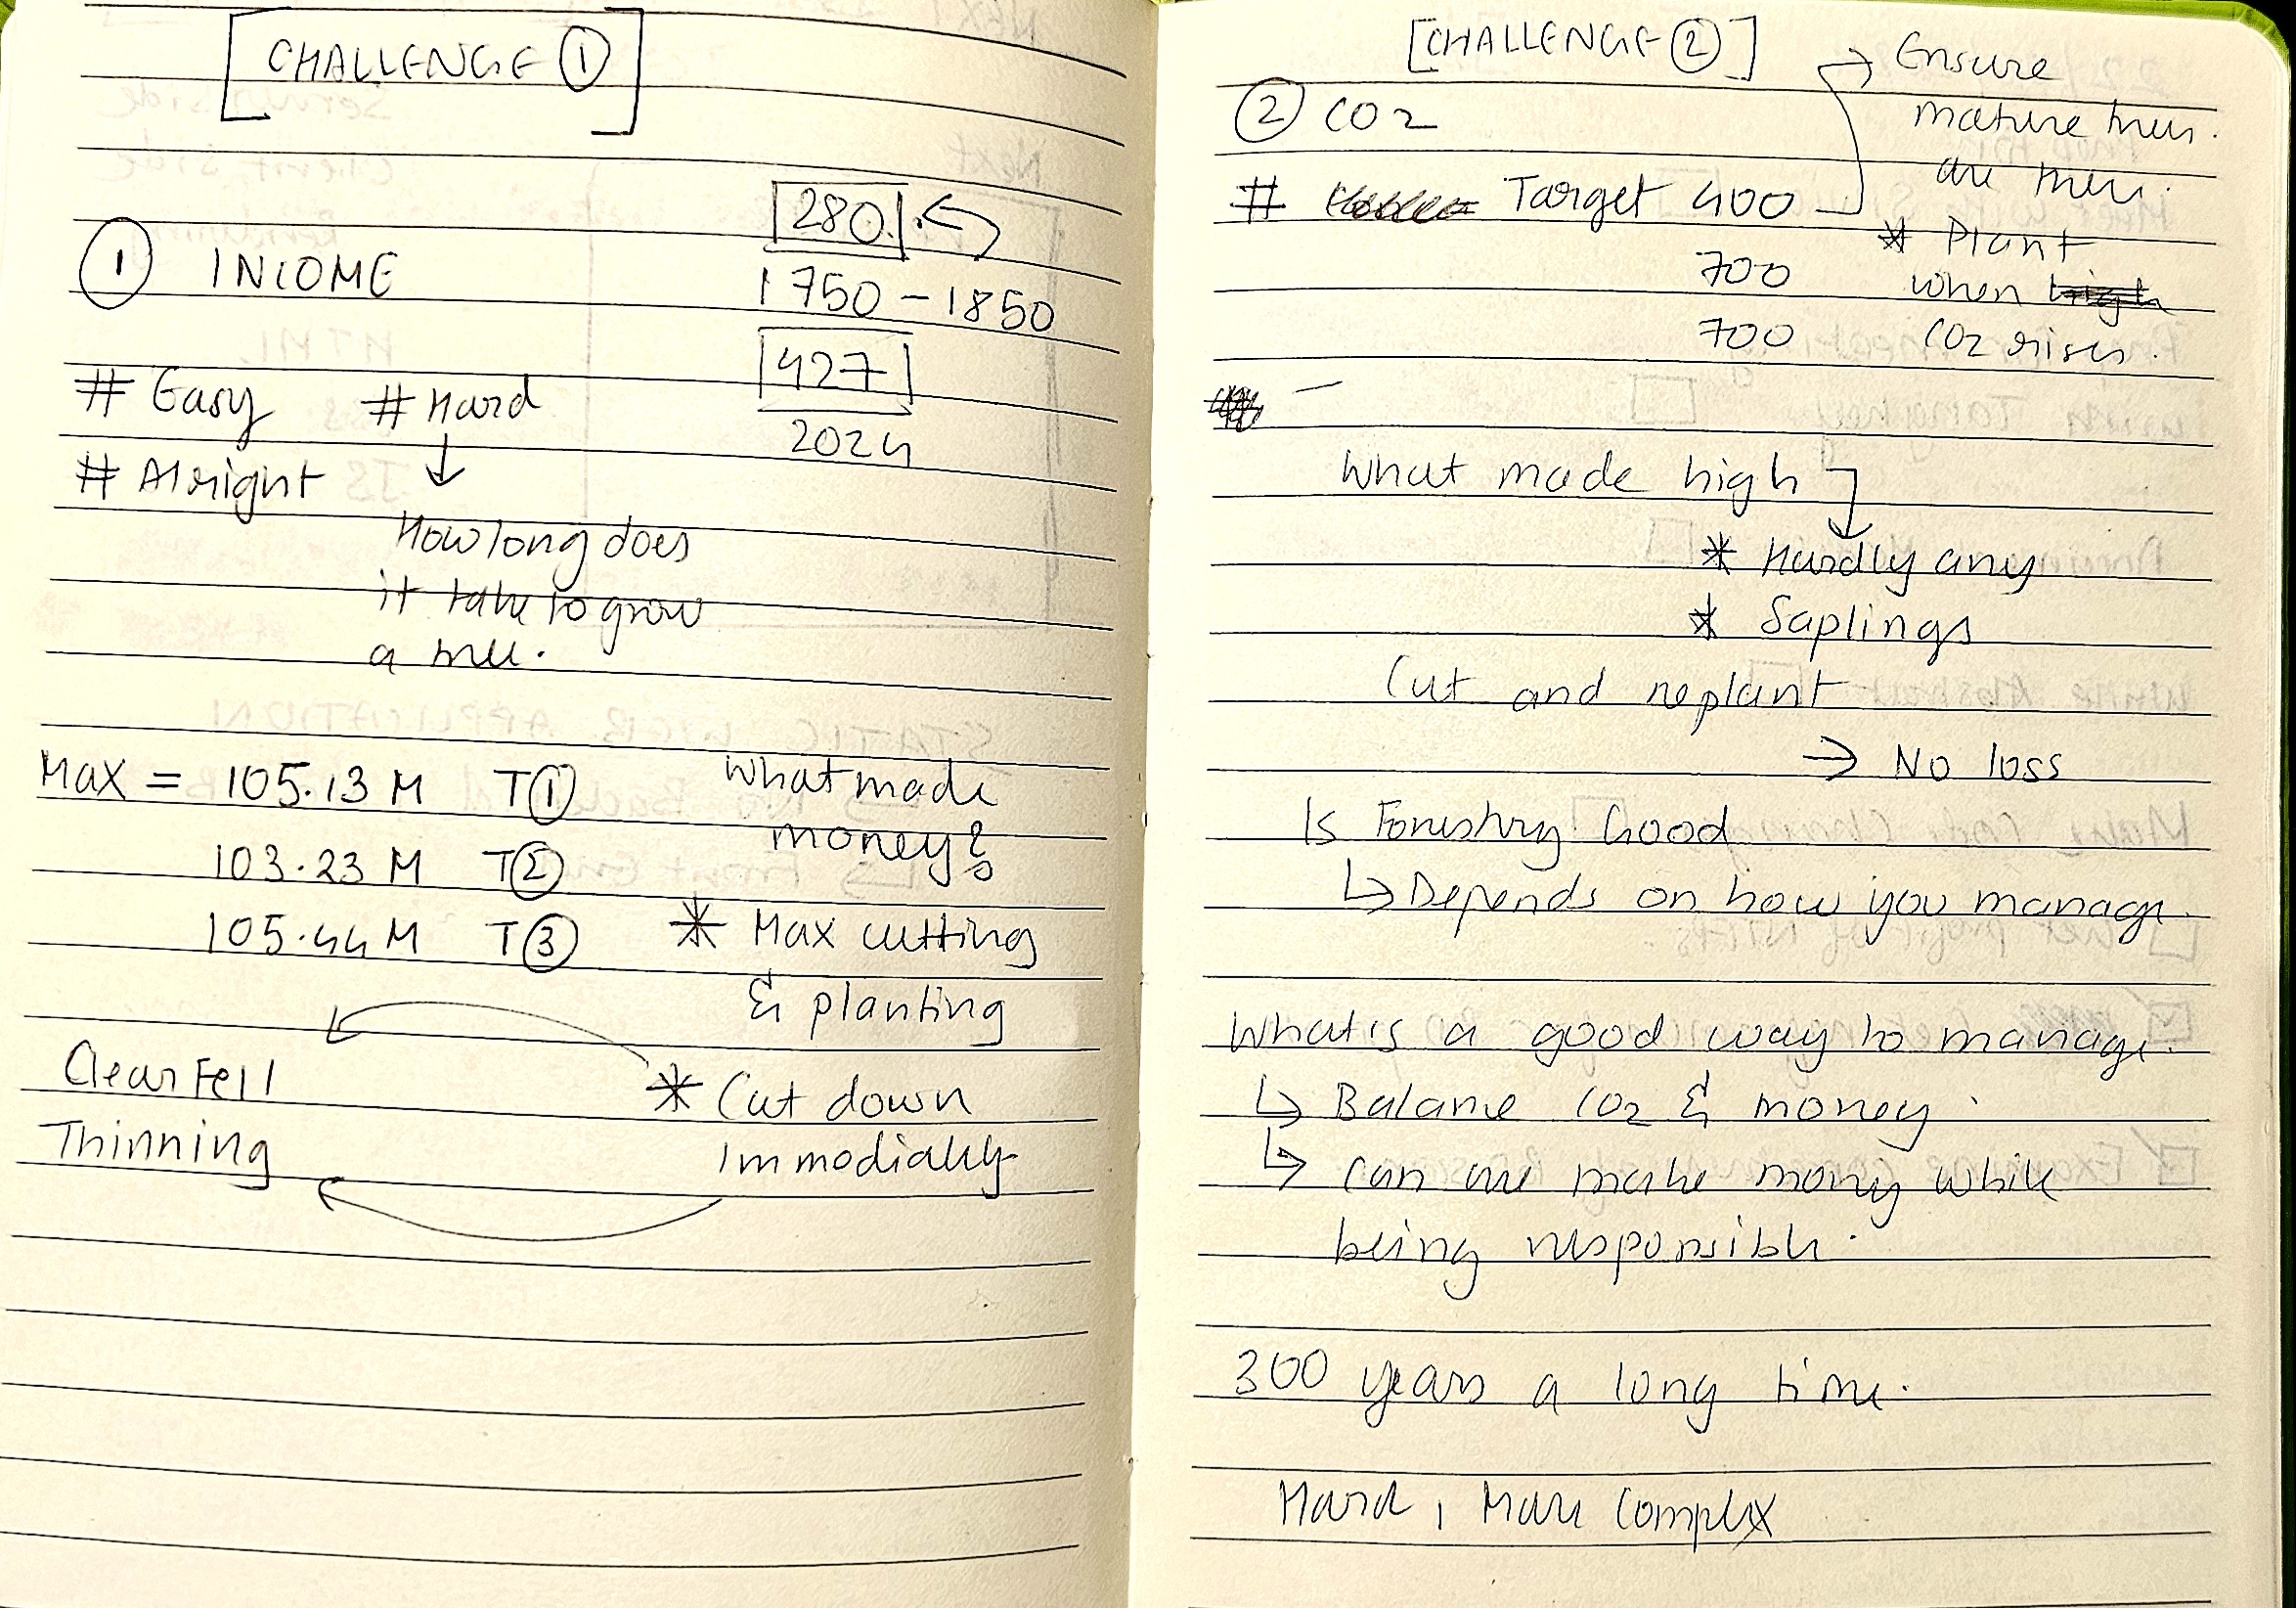 [CHALLENGE ①]
280.
① INCOME
1750 - 1850
427
2024
# Easy # Hard
# Alright
How long does
it take to grow
a tree.
Max = 105.13 M T①
103.23 M T②
105.44 M T③
What made
money?
* Max cutting
& planting
* Cut down
Immediatly
Clear Fell
Thinning
[CHALLENGE ②]
② CO2
# Target 400
700
700
→ Ensure
mature trees.
are there.
* Plant
when high
CO2 rises.
What made high
* Hardly any
* Saplings
Cut and replant
→ No loss
Is Forestry Good
↳ Depends on how you manage.
What is a good way to manage.
↳ Balance CO2 & money.
↳ Can we make money while
being responsible.
300 years a long time.
Hard, More Complex